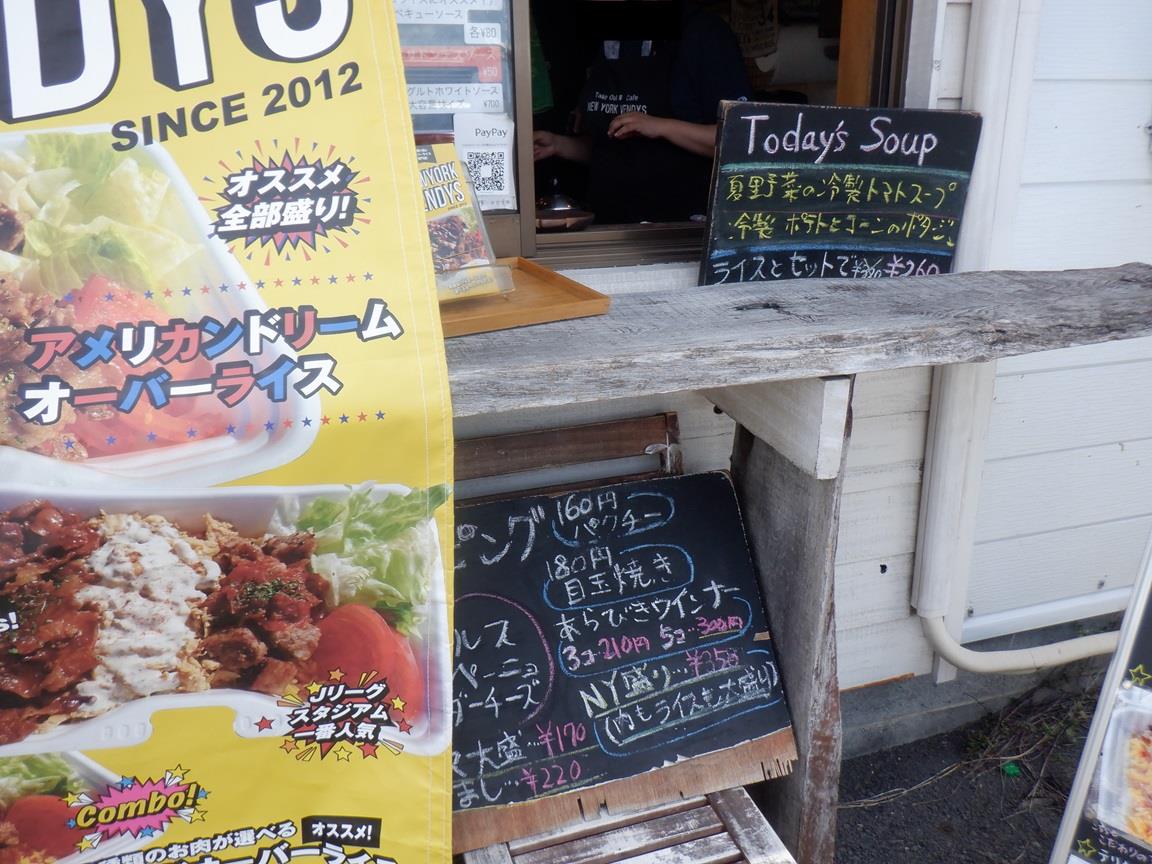 DYS
SINCE 2012
オススメ
全部盛り!
アメリカンドリーム
オーバーライス
Jリーグ
スタジアム
一番人気
Combo!
お肉が選べる
オススメ!
ーバーライス
ベキューソース
各¥80
グルトホワイトソース
¥700
PayPay
YORK
NDYS
Take Out & Cafe
NEW YORK VENDYS
Today's Soup
夏野菜の冷製トマトスープ
冷製 ポテトとコーンのポタジュ
ライスとセットで ¥260
ピング
160円
パクチー
180円
目玉焼き
あらびきウインナー
3コ 210円 5コ 300円
NY盛り…¥350
(肉もライスも大盛り)
ルス
ペーニョ
ダーチーズ
大盛…¥170
まし…¥220